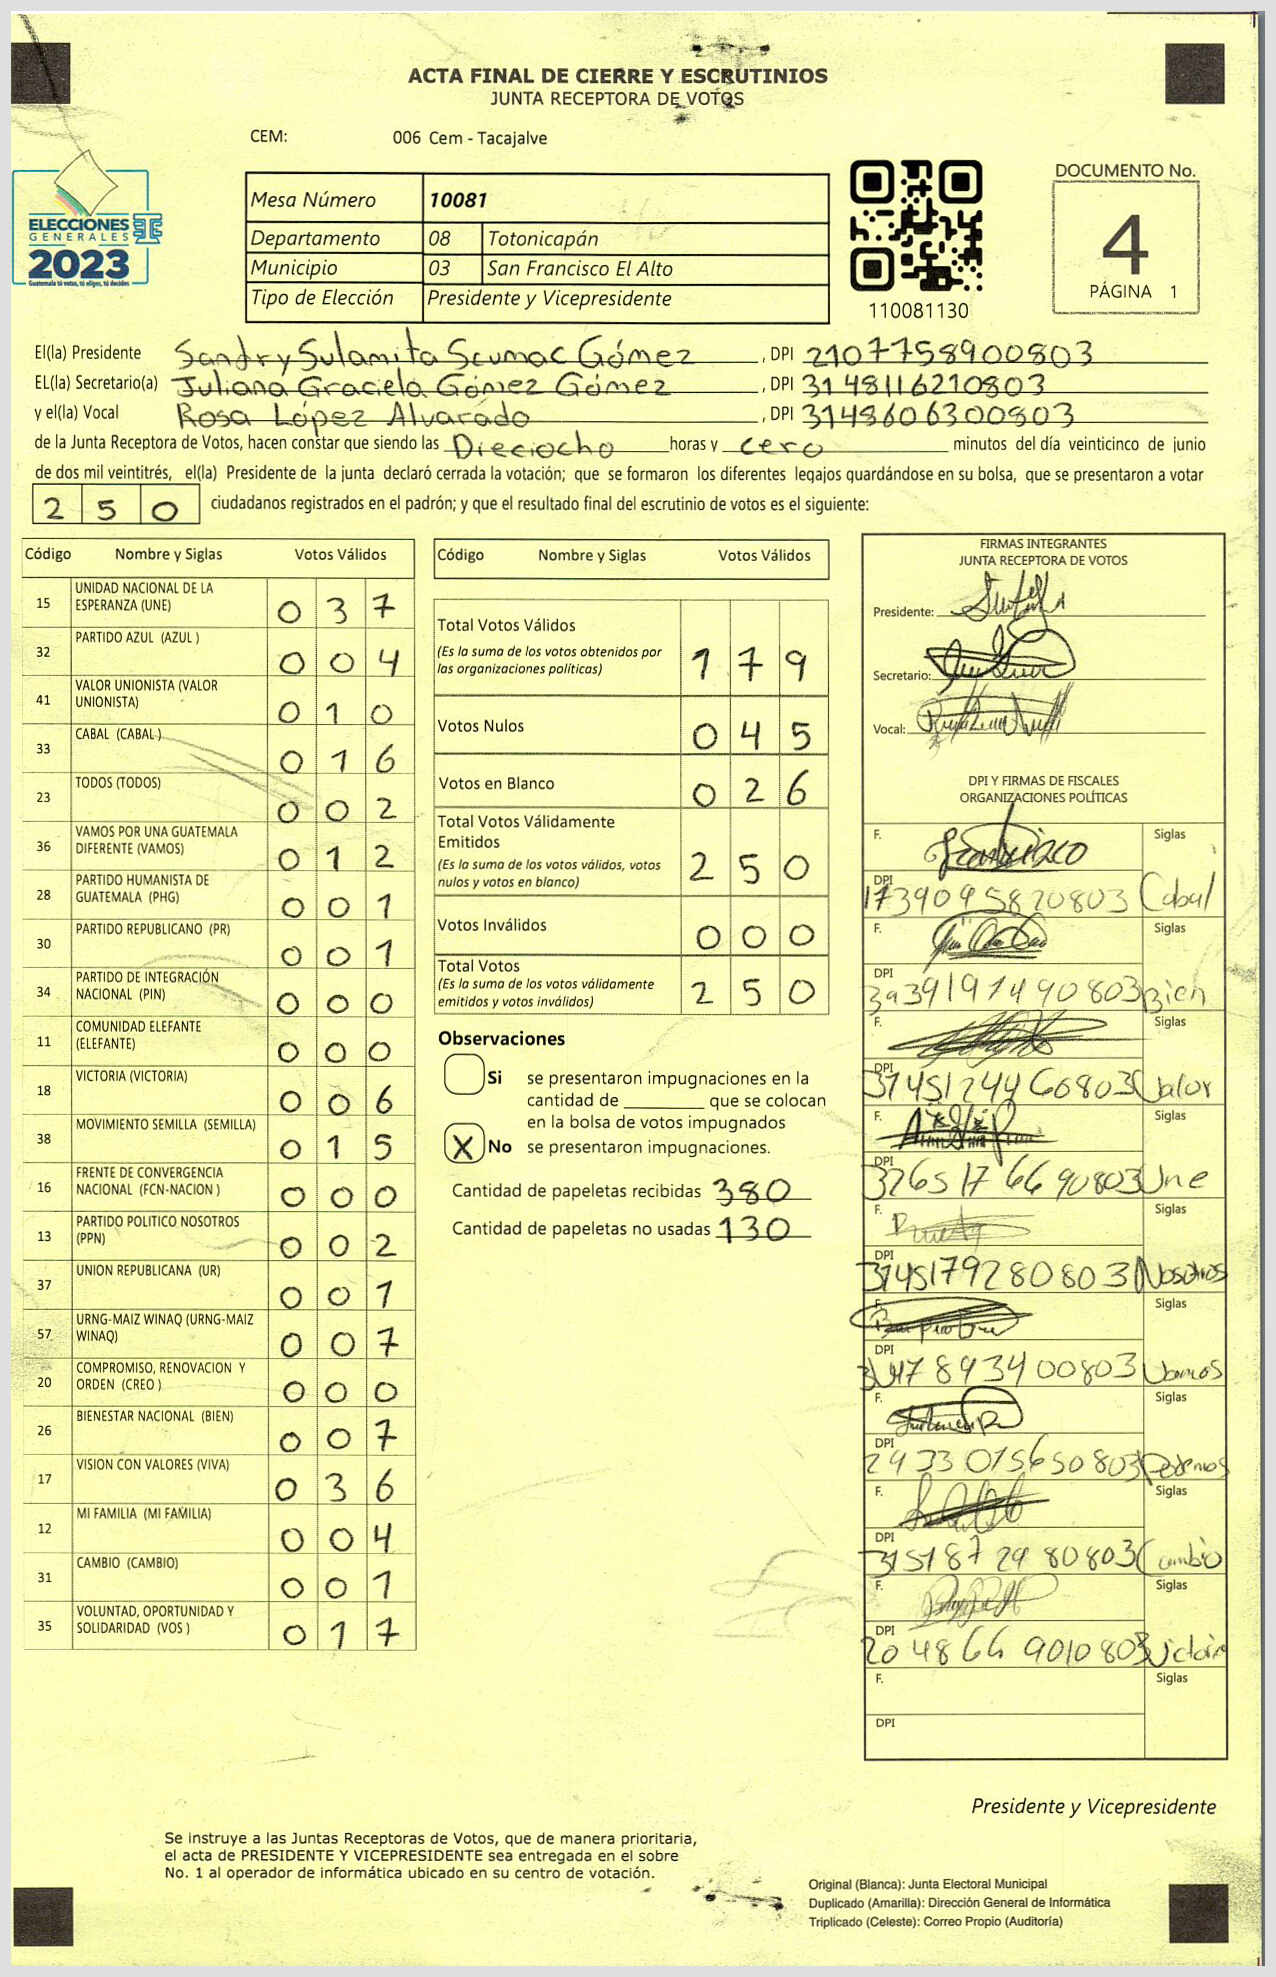 ACTA FINAL DE CIERRE Y ESCRUTINIOS
JUNTA RECEPTORA DE VOTOS
CEM: 006 Cem - Tacajalve
ELECCIONES
GENERALES
2023
Guatemala tú votas, tú eliges, tú decides
Mesa Número 10081
Departamento 08 Totonicapán
Municipio 03 San Francisco El Alto
Tipo de Elección Presidente y Vicepresidente
110081130
DOCUMENTO No.
4
PÁGINA 1
El(la) Presidente Sandry Sulamita Scumac Gómez, DPI 2107758900803
EL(la) Secretario(a) Juliana Graciela Gómez Gómez, DPI 3148116210803
y el(la) Vocal Rosa López Alvarado, DPI 3148606300803
de la Junta Receptora de Votos, hacen constar que siendo las Dieciocho horas y cero minutos del día veinticinco de junio
de dos mil veintitrés, el(la) Presidente de la junta declaró cerrada la votación; que se formaron los diferentes legajos guardándose en su bolsa, que se presentaron a votar
2 5 0 ciudadanos registrados en el padrón; y que el resultado final del escrutinio de votos es el siguiente:
Código Nombre y Siglas Votos Válidos
15 UNIDAD NACIONAL DE LA
ESPERANZA (UNE) 0 3 7
32 PARTIDO AZUL (AZUL ) 0 0 4
41 VALOR UNIONISTA (VALOR
UNIONISTA) 0 1 0
33 CABAL (CABAL ) 0 1 6
23 TODOS (TODOS) 0 0 2
36 VAMOS POR UNA GUATEMALA
DIFERENTE (VAMOS) 0 1 2
28 PARTIDO HUMANISTA DE
GUATEMALA (PHG) 0 0 1
30 PARTIDO REPUBLICANO (PR) 0 0 1
34 PARTIDO DE INTEGRACIÓN
NACIONAL (PIN) 0 0 0
11 COMUNIDAD ELEFANTE
(ELEFANTE) 0 0 0
18 VICTORIA (VICTORIA) 0 0 6
38 MOVIMIENTO SEMILLA (SEMILLA) 0 1 5
16 FRENTE DE CONVERGENCIA
NACIONAL (FCN-NACION ) 0 0 0
13 PARTIDO POLITICO NOSOTROS
(PPN) 0 0 2
37 UNION REPUBLICANA (UR) 0 0 1
57 URNG-MAIZ WINAQ (URNG-MAIZ
WINAQ) 0 0 7
20 COMPROMISO, RENOVACION Y
ORDEN (CREO ) 0 0 0
26 BIENESTAR NACIONAL (BIEN) 0 0 7
17 VISION CON VALORES (VIVA) 0 3 6
12 MI FAMILIA (MI FAMILIA) 0 0 4
31 CAMBIO (CAMBIO) 0 0 1
35 VOLUNTAD, OPORTUNIDAD Y
SOLIDARIDAD (VOS ) 0 1 7
Código Nombre y Siglas Votos Válidos
Total Votos Válidos
(Es la suma de los votos obtenidos por
las organizaciones políticas) 1 7 9
Votos Nulos 0 4 5
Votos en Blanco 0 2 6
Total Votos Válidamente
Emitidos
(Es la suma de los votos válidos, votos
nulos y votos en blanco) 2 5 0
Votos Inválidos 0 0 0
Total Votos
(Es la suma de los votos válidamente
emitidos y votos inválidos) 2 5 0
Observaciones
Si se presentaron impugnaciones en la
cantidad de ________ que se colocan
en la bolsa de votos impugnados
X No se presentaron impugnaciones.
Cantidad de papeletas recibidas 380
Cantidad de papeletas no usadas 130
FIRMAS INTEGRANTES
JUNTA RECEPTORA DE VOTOS
Presidente:
Secretario:
Vocal:
DPI Y FIRMAS DE FISCALES
ORGANIZACIONES POLÍTICAS
F. Siglas
DPI
1739095820803 Cabal
F. Siglas
DPI
Bien
F. Siglas
DPI
3745124460803 Valor
F. Siglas
DPI
3265176690803 Une
F. Siglas
DPI
3745179280803 Nosotros
F. Siglas
DPI
Vamos
F. Siglas
DPI
2433015650803 Podemos
F. Siglas
DPI
3151872980803 Cambio
F. Siglas
DPI
2048669010803 Victoria
F. Siglas
DPI
Presidente y Vicepresidente
Se instruye a las Juntas Receptoras de Votos, que de manera prioritaria,
el acta de PRESIDENTE Y VICEPRESIDENTE sea entregada en el sobre
No. 1 al operador de informática ubicado en su centro de votación.
Original (Blanca): Junta Electoral Municipal
Duplicado (Amarilla): Dirección General de Informática
Triplicado (Celeste): Correo Propio (Auditoría)